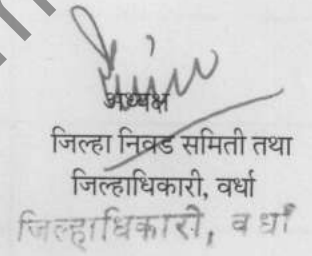 अध्यक्ष
जिल्हा निवड समिती तथा
जिल्हाधिकारी, वर्धा
जिल्हाधिकारी, वर्धा